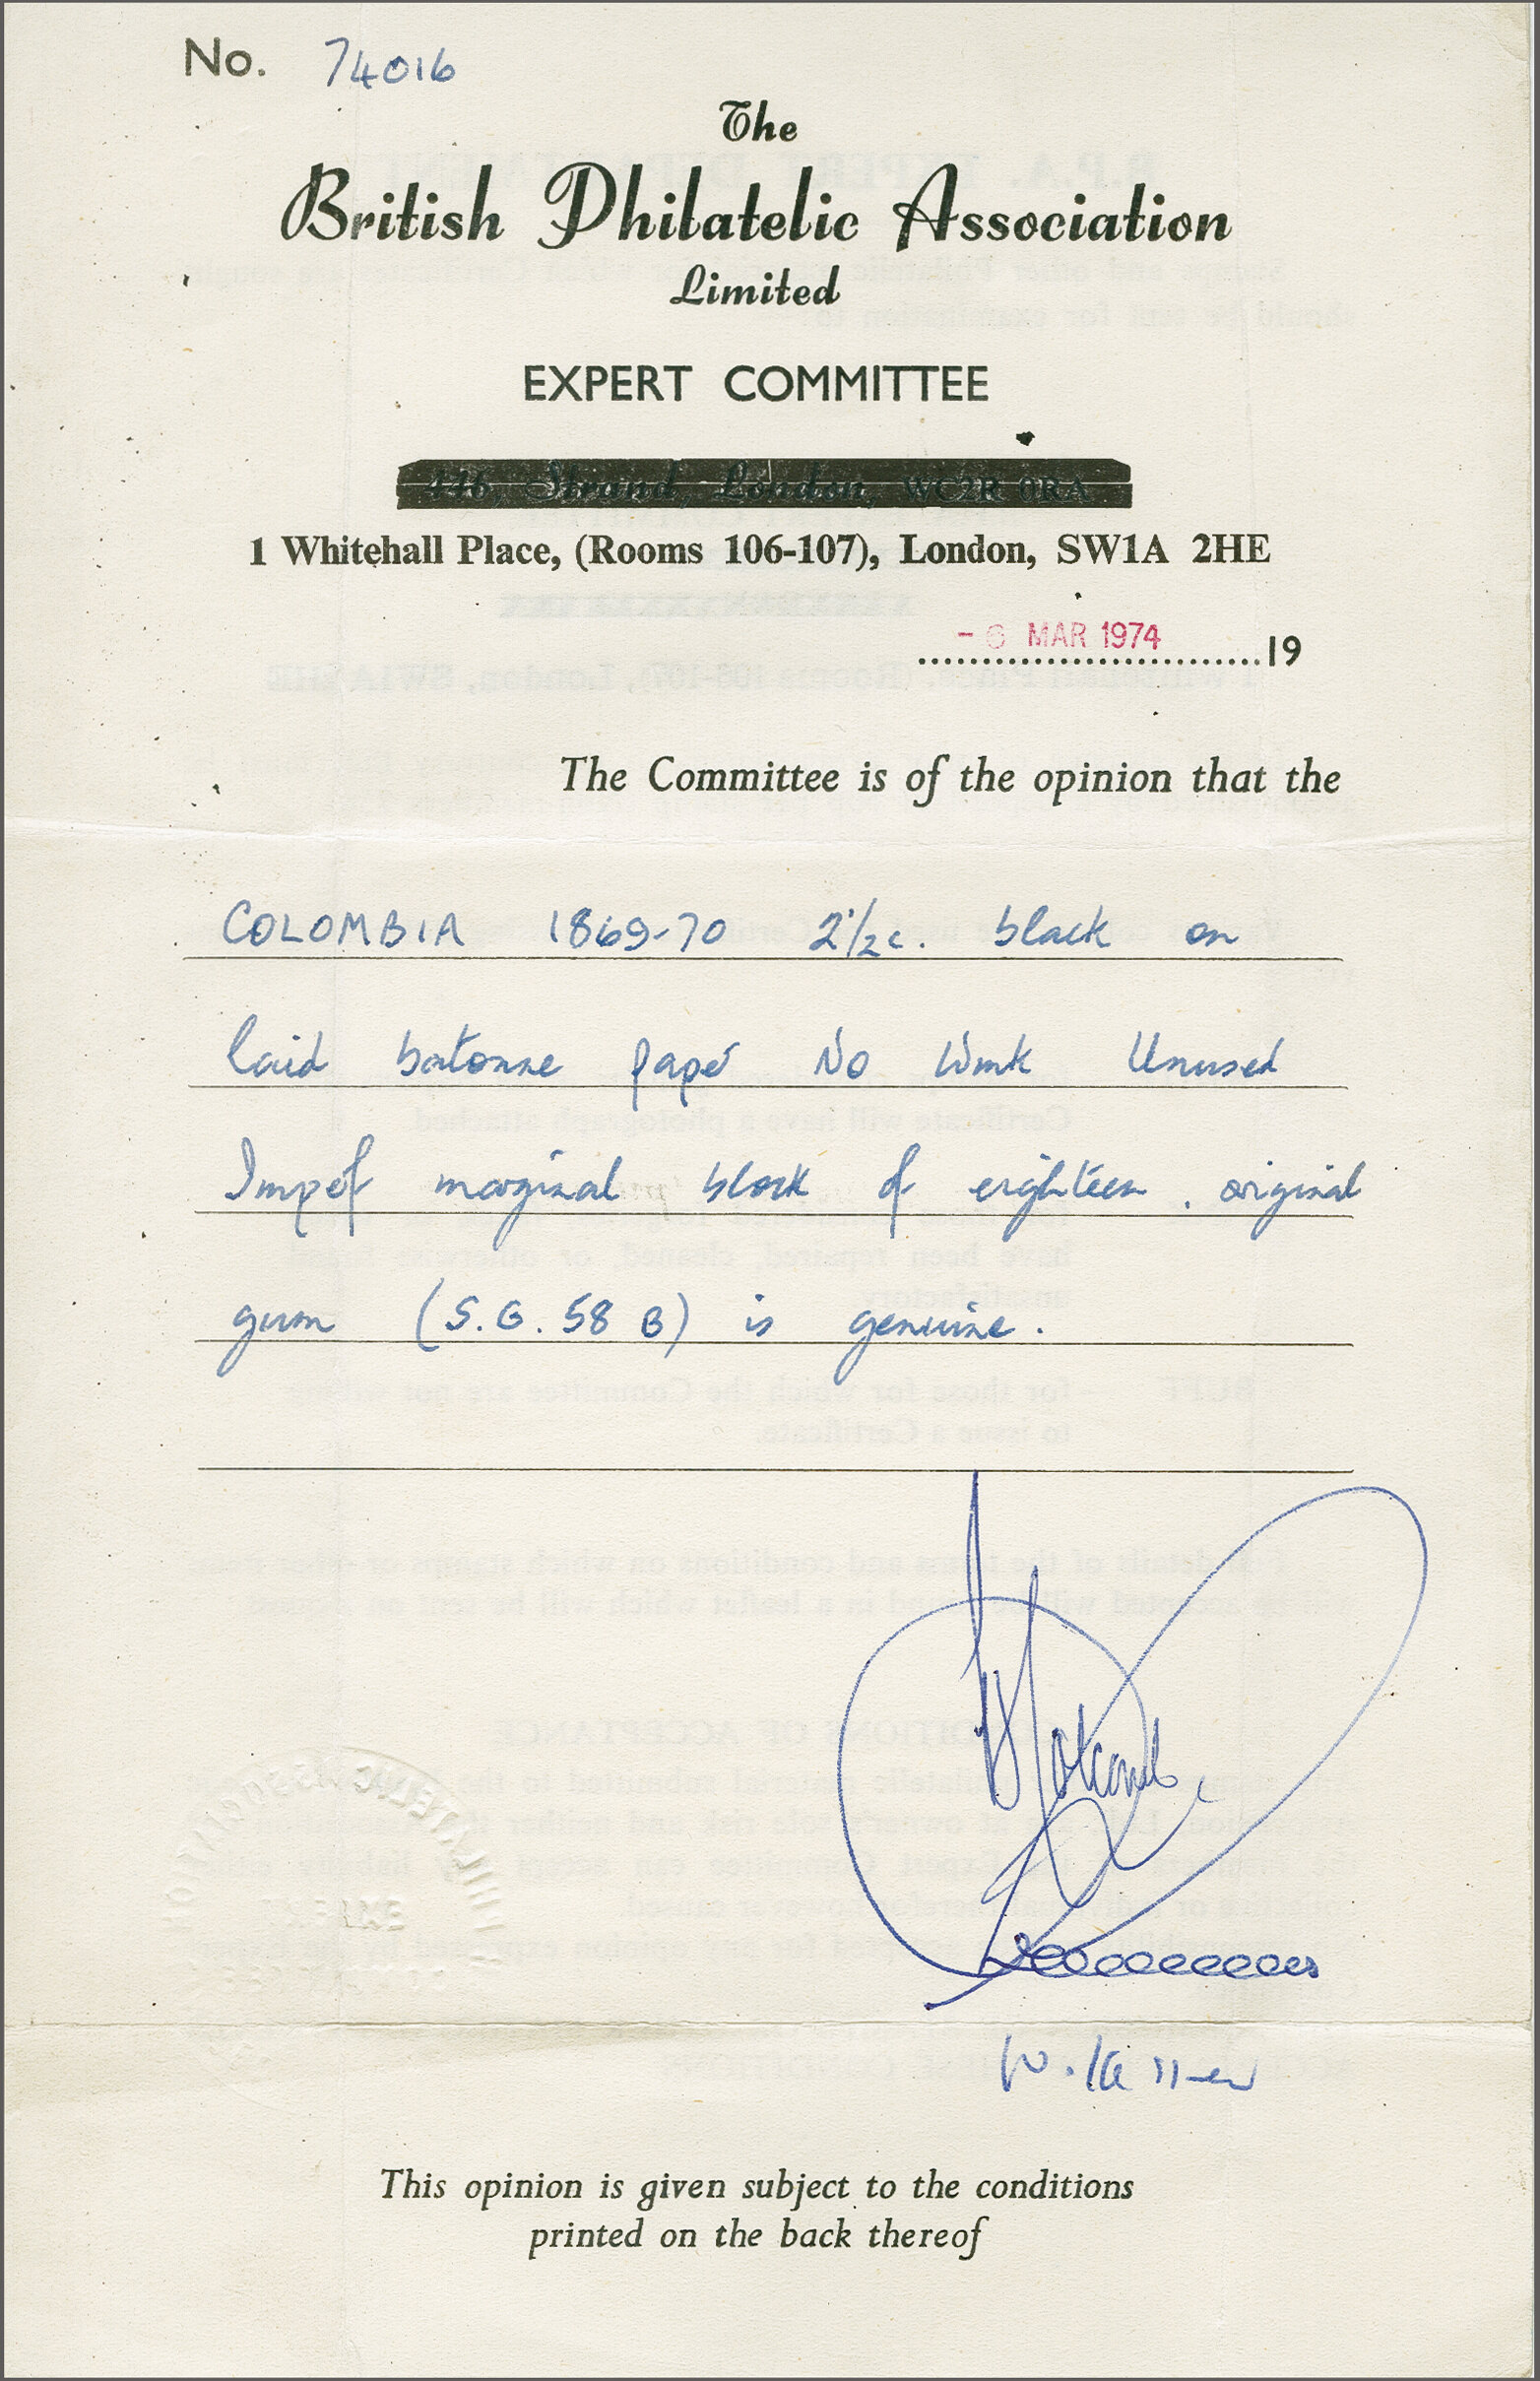 No. 74016
The
British Philatelic Association
Limited
EXPERT COMMITTEE
446, Strand, London, WC2R 0RA
1 Whitehall Place, (Rooms 106-107), London, SW1A 2HE
- 6 MAR 1974
19
The Committee is of the opinion that the
COLOMBIA 1869-70 2½c. black on
laid batonne paper No Wmk Unused
Imperf marginal block of eighteen. original
gum (S.G. 58 B) is genuine.
This opinion is given subject to the conditions
printed on the back thereof